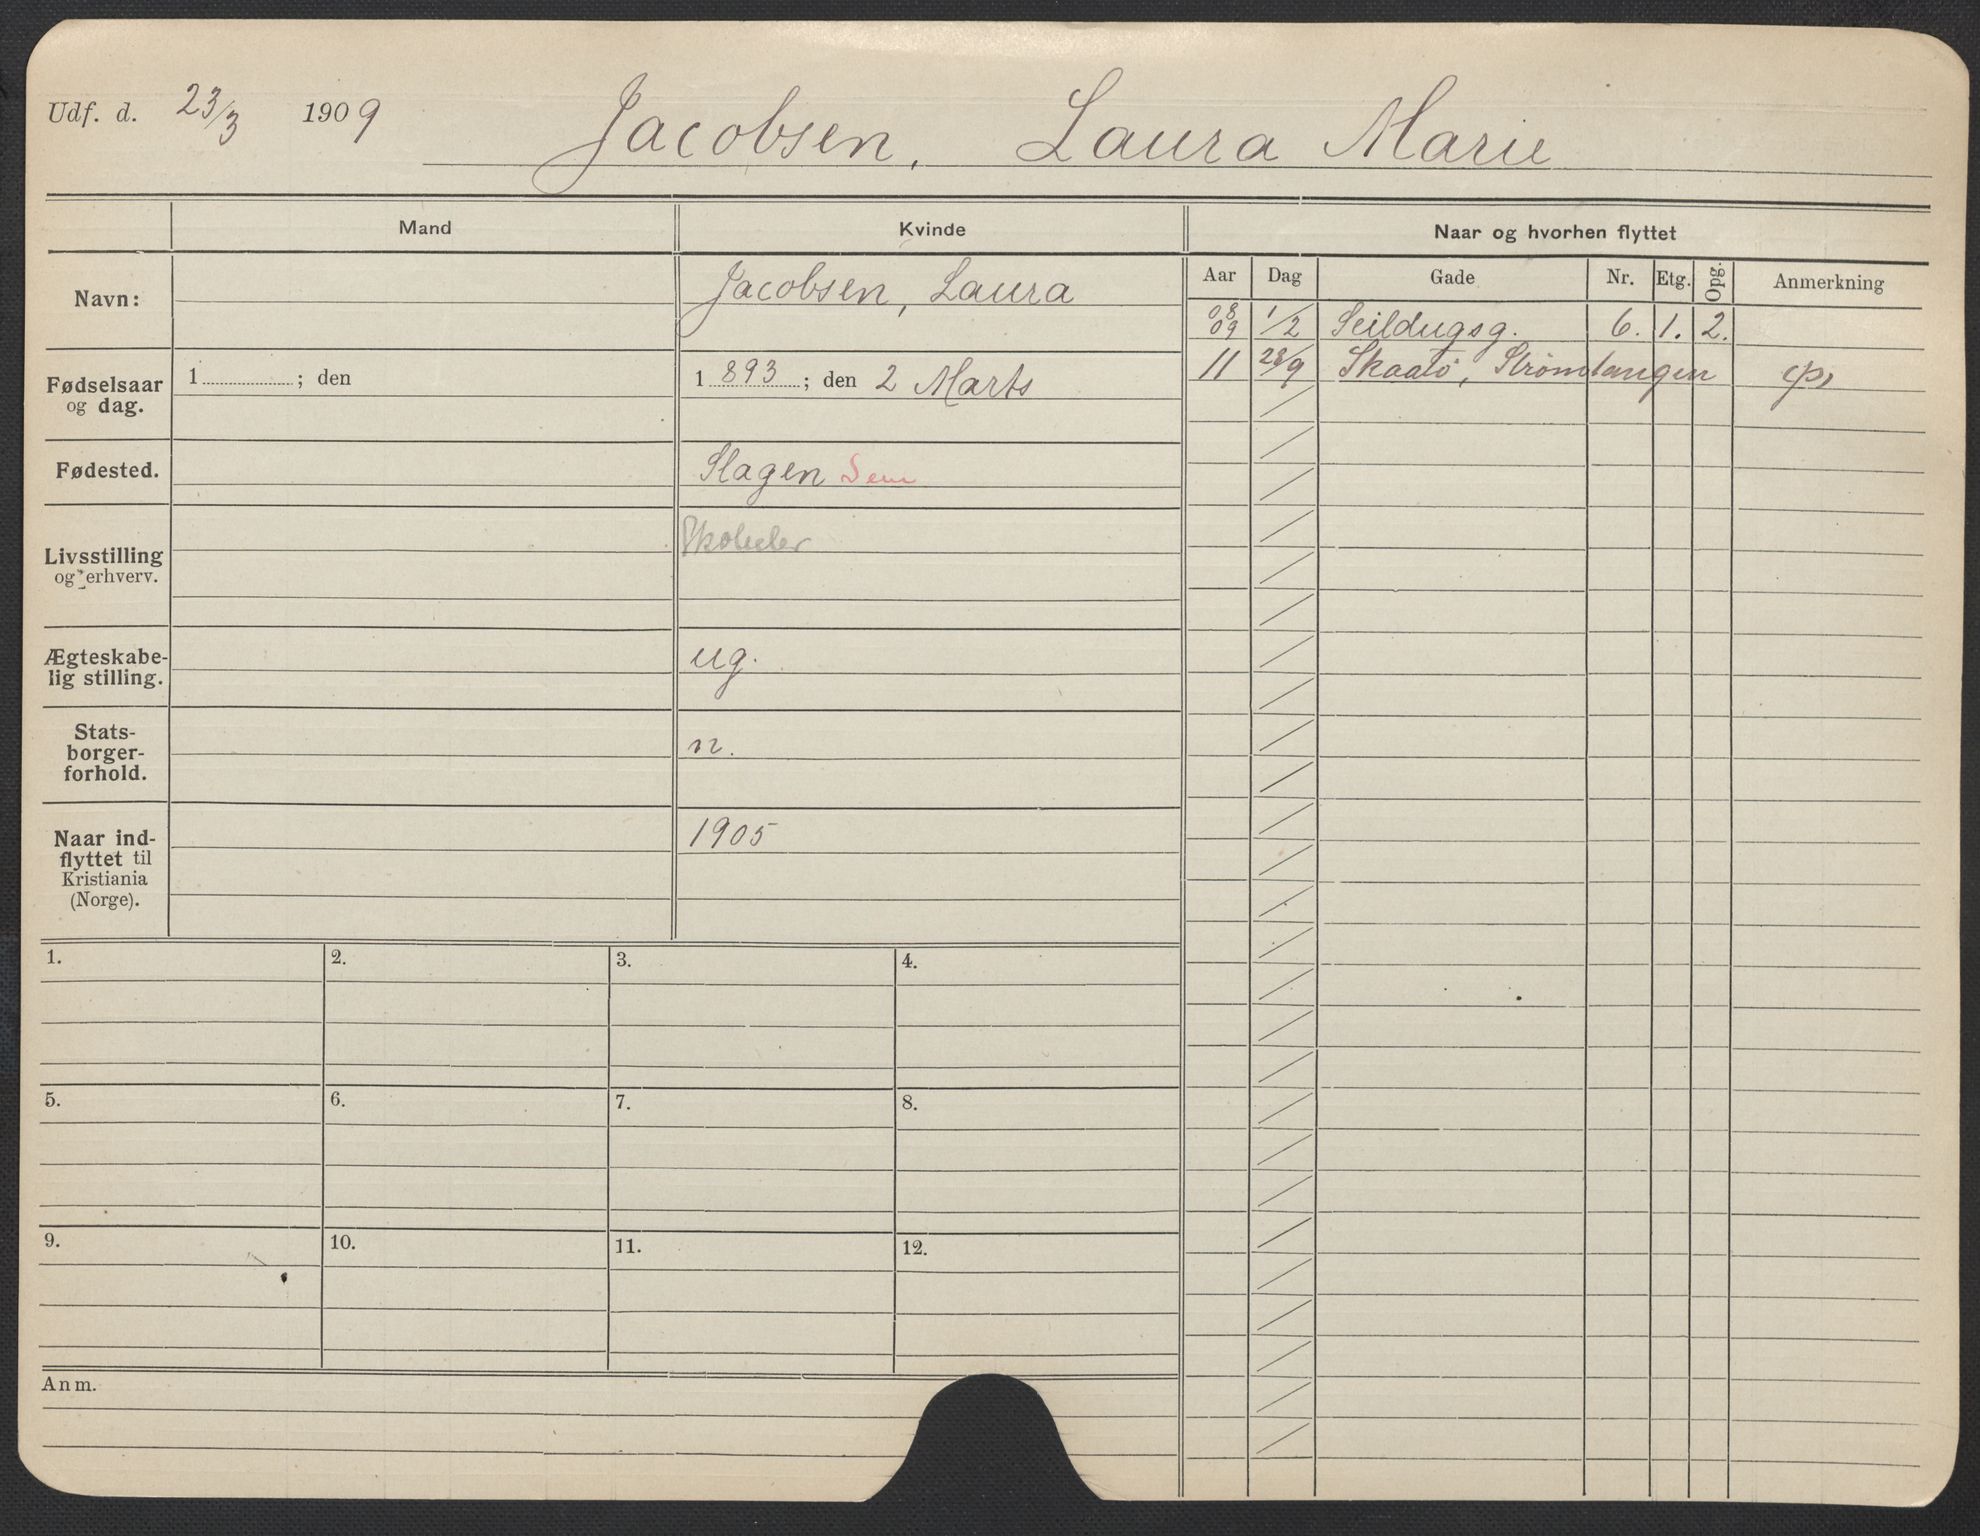 Udf. d. 23/3 1909 Jacobsen, Laura Marie
Mand Kvinde Naar og hvorhen flyttet
Aar Dag Gade Nr. Etg. Opg. Anmerkning
Navn: Jacobsen, Laura
08
09 1/2 Seildugsg. 6. 1. 2.
11 28/9 Skaatö, Strömtangen
Fødselsaar
og dag.
1 ; den
1893; den 2 Marts
Fødested. Slagen Sem
Livsstilling
og erhverv.
Skoleelev
Ægteskabe-
lig stilling.
ug.
Stats-
borger-
forhold.
n.
Naar ind-
flyttet til
Kristiania
(Norge).
1905
1. 2. 3. 4.
5. 6. 7. 8.
9. 10. 11. 12.
Anm.